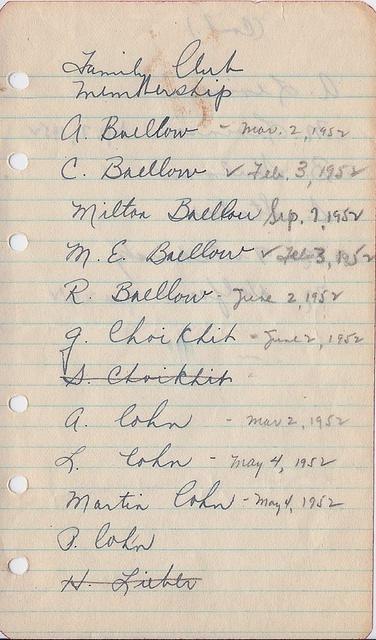 Family Club
Membership
A. Baellow - Mar. 2, 1952
C. Baellow ✓ Feb. 3, 1952
Milton Baellow Sep. 7, 1952
M. E. Baellow ✓ Feb 3, 1952
R. Baellow - June 2, 1952
G. Choikhit - June 2, 1952
S. Choikhit
A. Cohn - Mar 2, 1952
L. Cohn - May 4, 1952
Martin Cohn - May 4, 1952
P. Cohn
H. Lieber